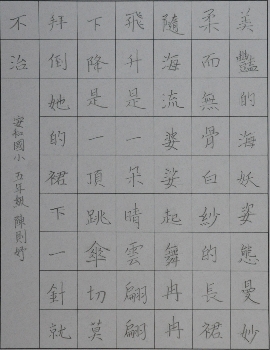 美豔的海妖姿態曼妙
柔而無骨白紗的長裙
隨海流婆娑起舞冉冉
飛升是一朵晴雲翩翩
下降是一頂跳傘切莫
拜倒她的裙下一針就
不治
安和國小 五年級 陳則妤